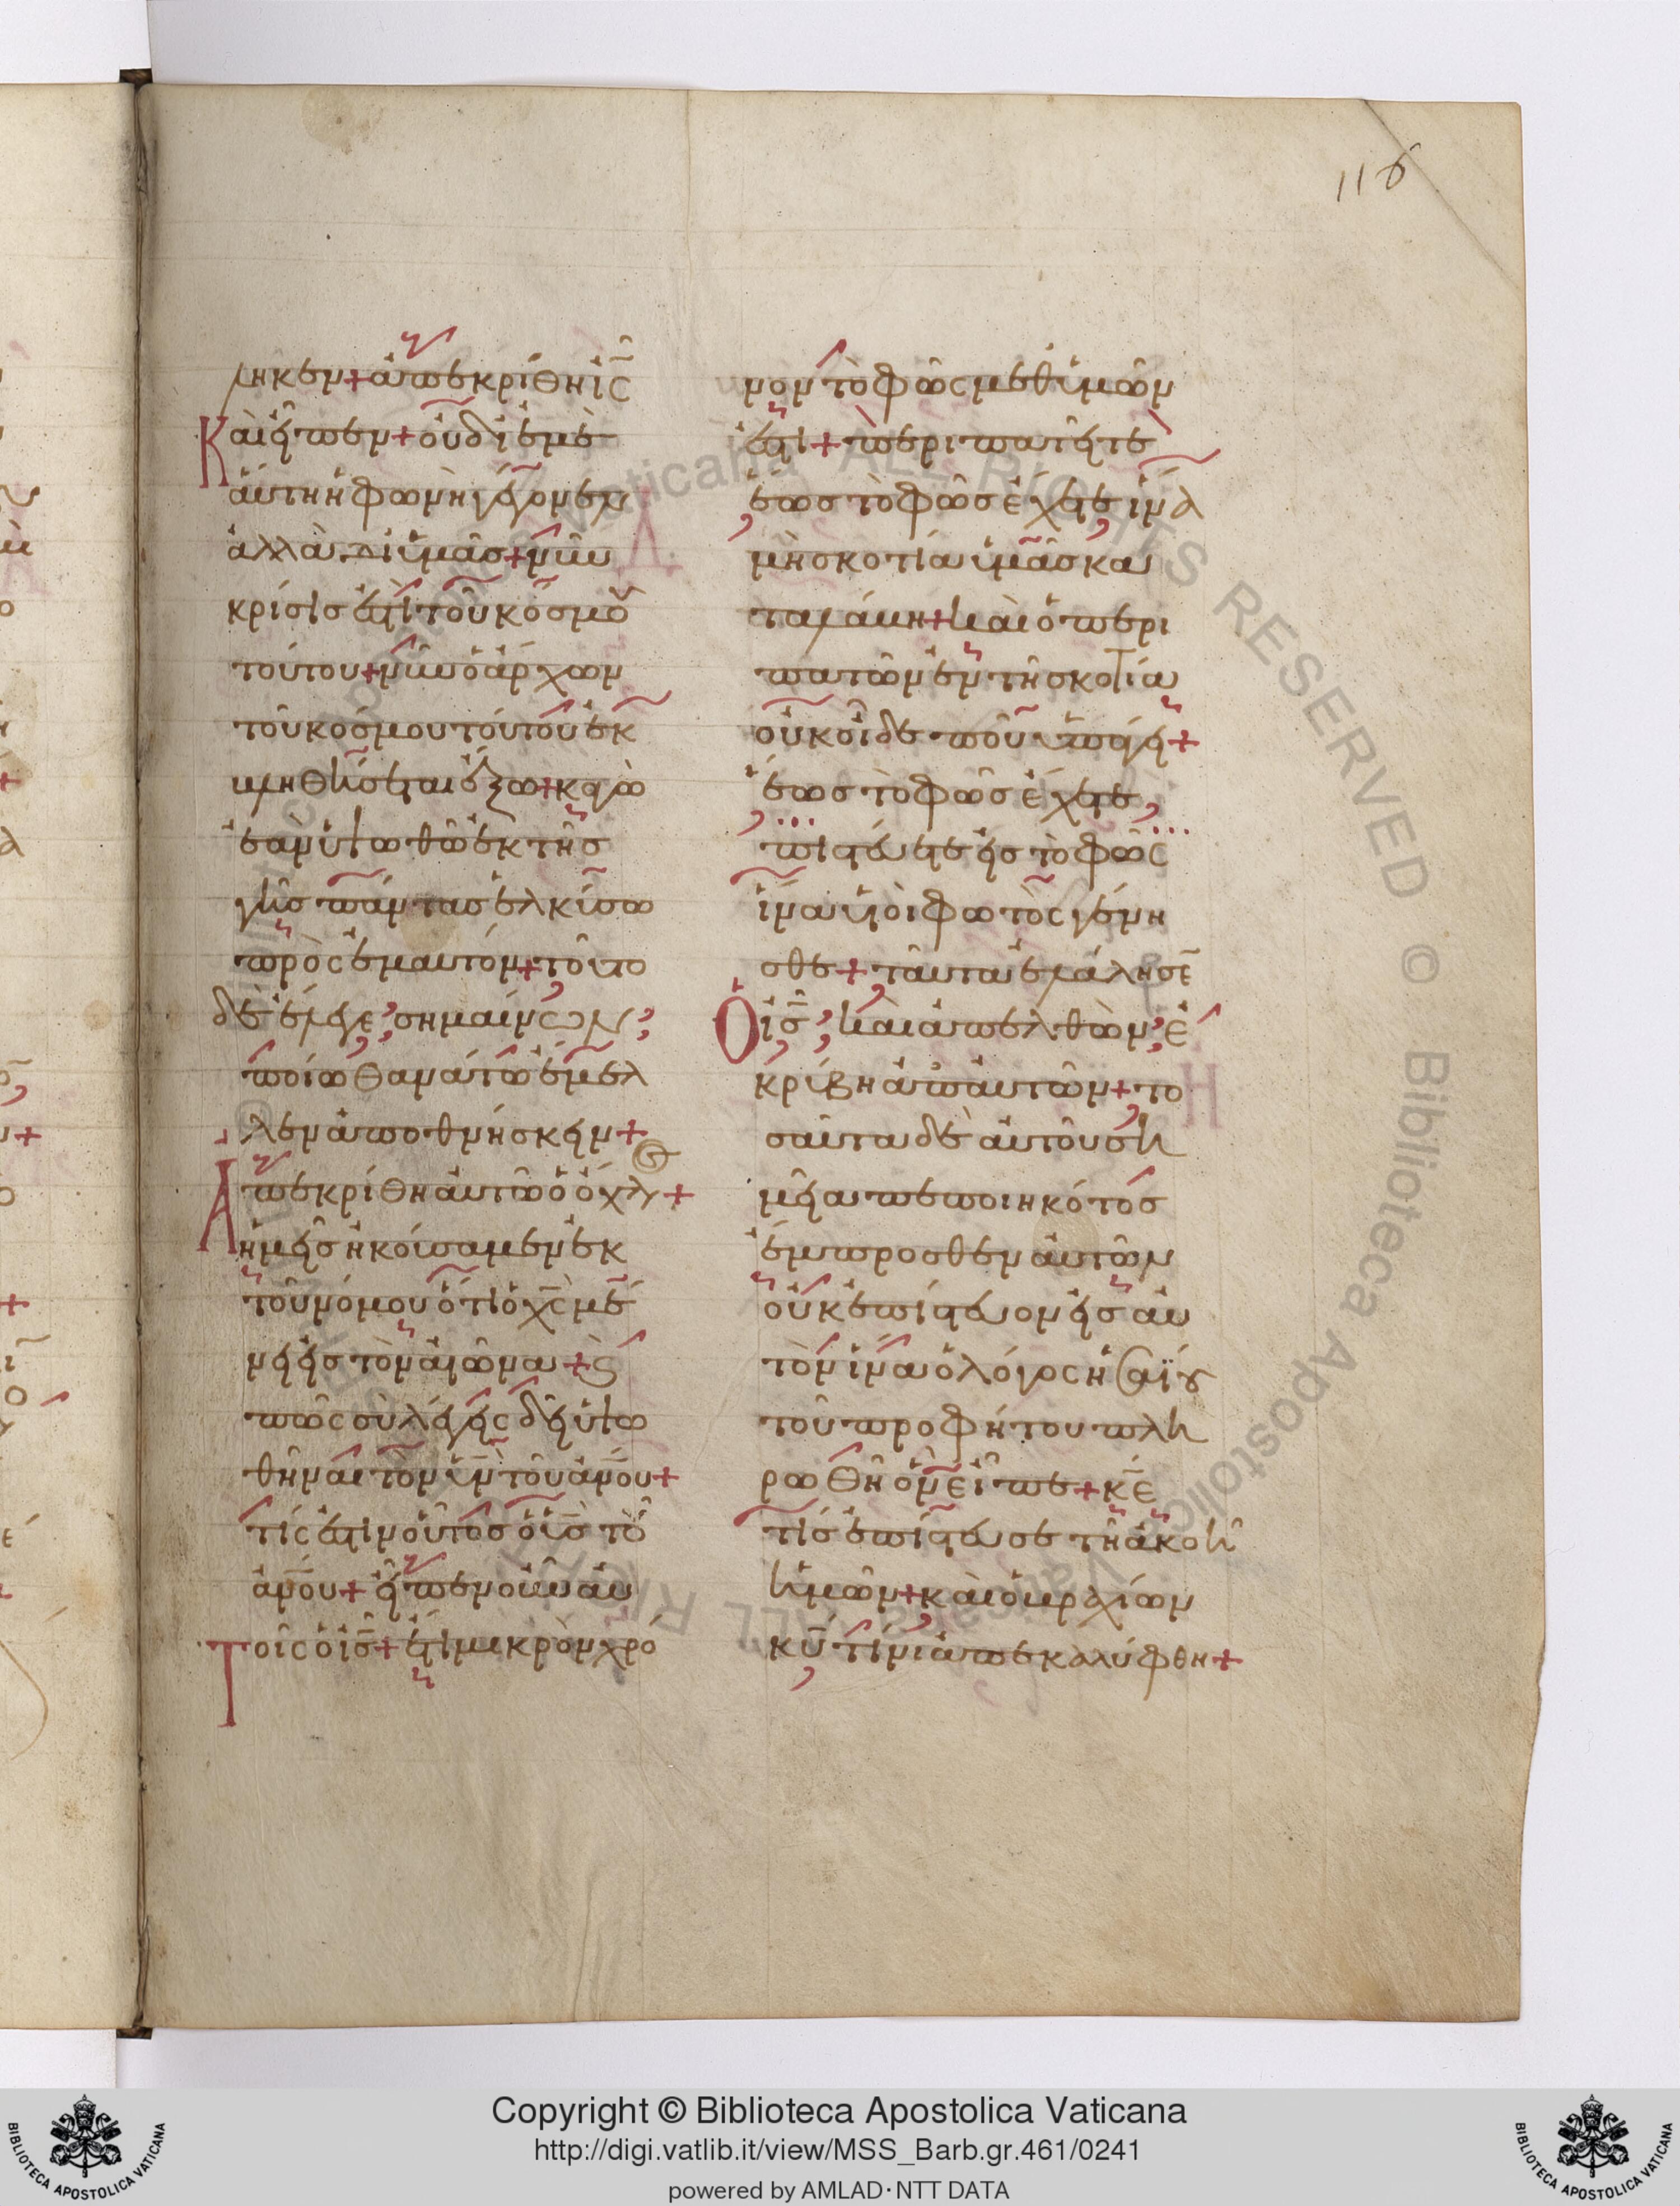 118
ληκεν + ἀπεκρίθη ἰ̅ς̅
Καὶ εἶπεν + οὐ δι' ἐμὲ
αὕτη ἡ φωνὴ γέγονεν
ἀλλὰ δι' ὑμᾶς + νῦν
κρίσις ἐστὶ τοῦ κόσμου
τούτου + νῦν ὁ ἄρχων
τοῦ κόσμου τούτου ἐκ
βληθήσεται ἔξω + κἀγὼ
ἐὰν ὑψωθῶ ἐκ τῆς
γῆς πάντας ἑλκύσω
πρὸς ἐμαυτόν + τοῦτο
δὲ ἔλεγε σημαίνων
ποίω θανάτω ἔμελ
λεν ἀποθνήσκειν +
Ἀπεκρίθη αὐτῶ ὁ ὄχλος +
ἡμεῖς ἠκούσαμεν ἐκ
τοῦ νόμου ὅτι ὁ χ̅ς̅ μέ
νει εἰς τὸν αἰῶνα + ϗ
πῶς σὺ λέγεις δεῖ ὑψω
θῆναι τὸν υ̅ν̅ τοῦ α̅ν̅ο̅υ̅ +
τίς ἐστιν οὗτος ὁ υ̅ς̅ τοῦ
α̅ν̅ο̅υ̅ + εἶπεν οὖν αὐ
Τοῖς ὁ ἰ̅ς̅ + ἔτι μικρὸν χρό
νον τὸ φῶς μεθ' ὑμῶν
ἐστι + περιπατεῖτε
ἕως τὸ φῶς ἔχετε ἵνα
μὴ σκοτία ὑμᾶς κα
ταλάβη + καὶ ὁ περι
πατῶν ἐν τῆ σκοτία
οὐκ οἶδε ποῦ ὑπάγει +
ἕως τὸ φῶς ἔχετε
πιστεύετε εἰς τὸ φῶς
ἵνα υἱοὶ φωτὸς γένη
σθε + ταῦτα ἐλάλησε̅
Ὁ ἰ̅ς̅ καὶ ἀπελθὼν ἐ
κρύβη ἀπ' αὐτῶν + το
σαῦτα δὲ αὐτοῦ ση
μεῖα πεποιηκότος
ἔμπροσθεν αὐτῶν
οὐκ ἐπίστευον εἰς αὐ
τὸν ἵνα ὁ λόγος ἡσαΐου
τοῦ προφήτου πλη
ρωθῆ ὃν εἶπε + κ̅ε̅
τίς ἐπίστευσε τῆ ἀκοῆ
ἡμῶν + καὶ ὁ βραχίων
κ̅υ̅ τίνι ἀπεκαλύφθη +
Copyright © Biblioteca Apostolica Vaticana
http://digi.vatlib.it/view/MSS_Barb.gr.461/0241
powered by AMLAD·NTT DATA